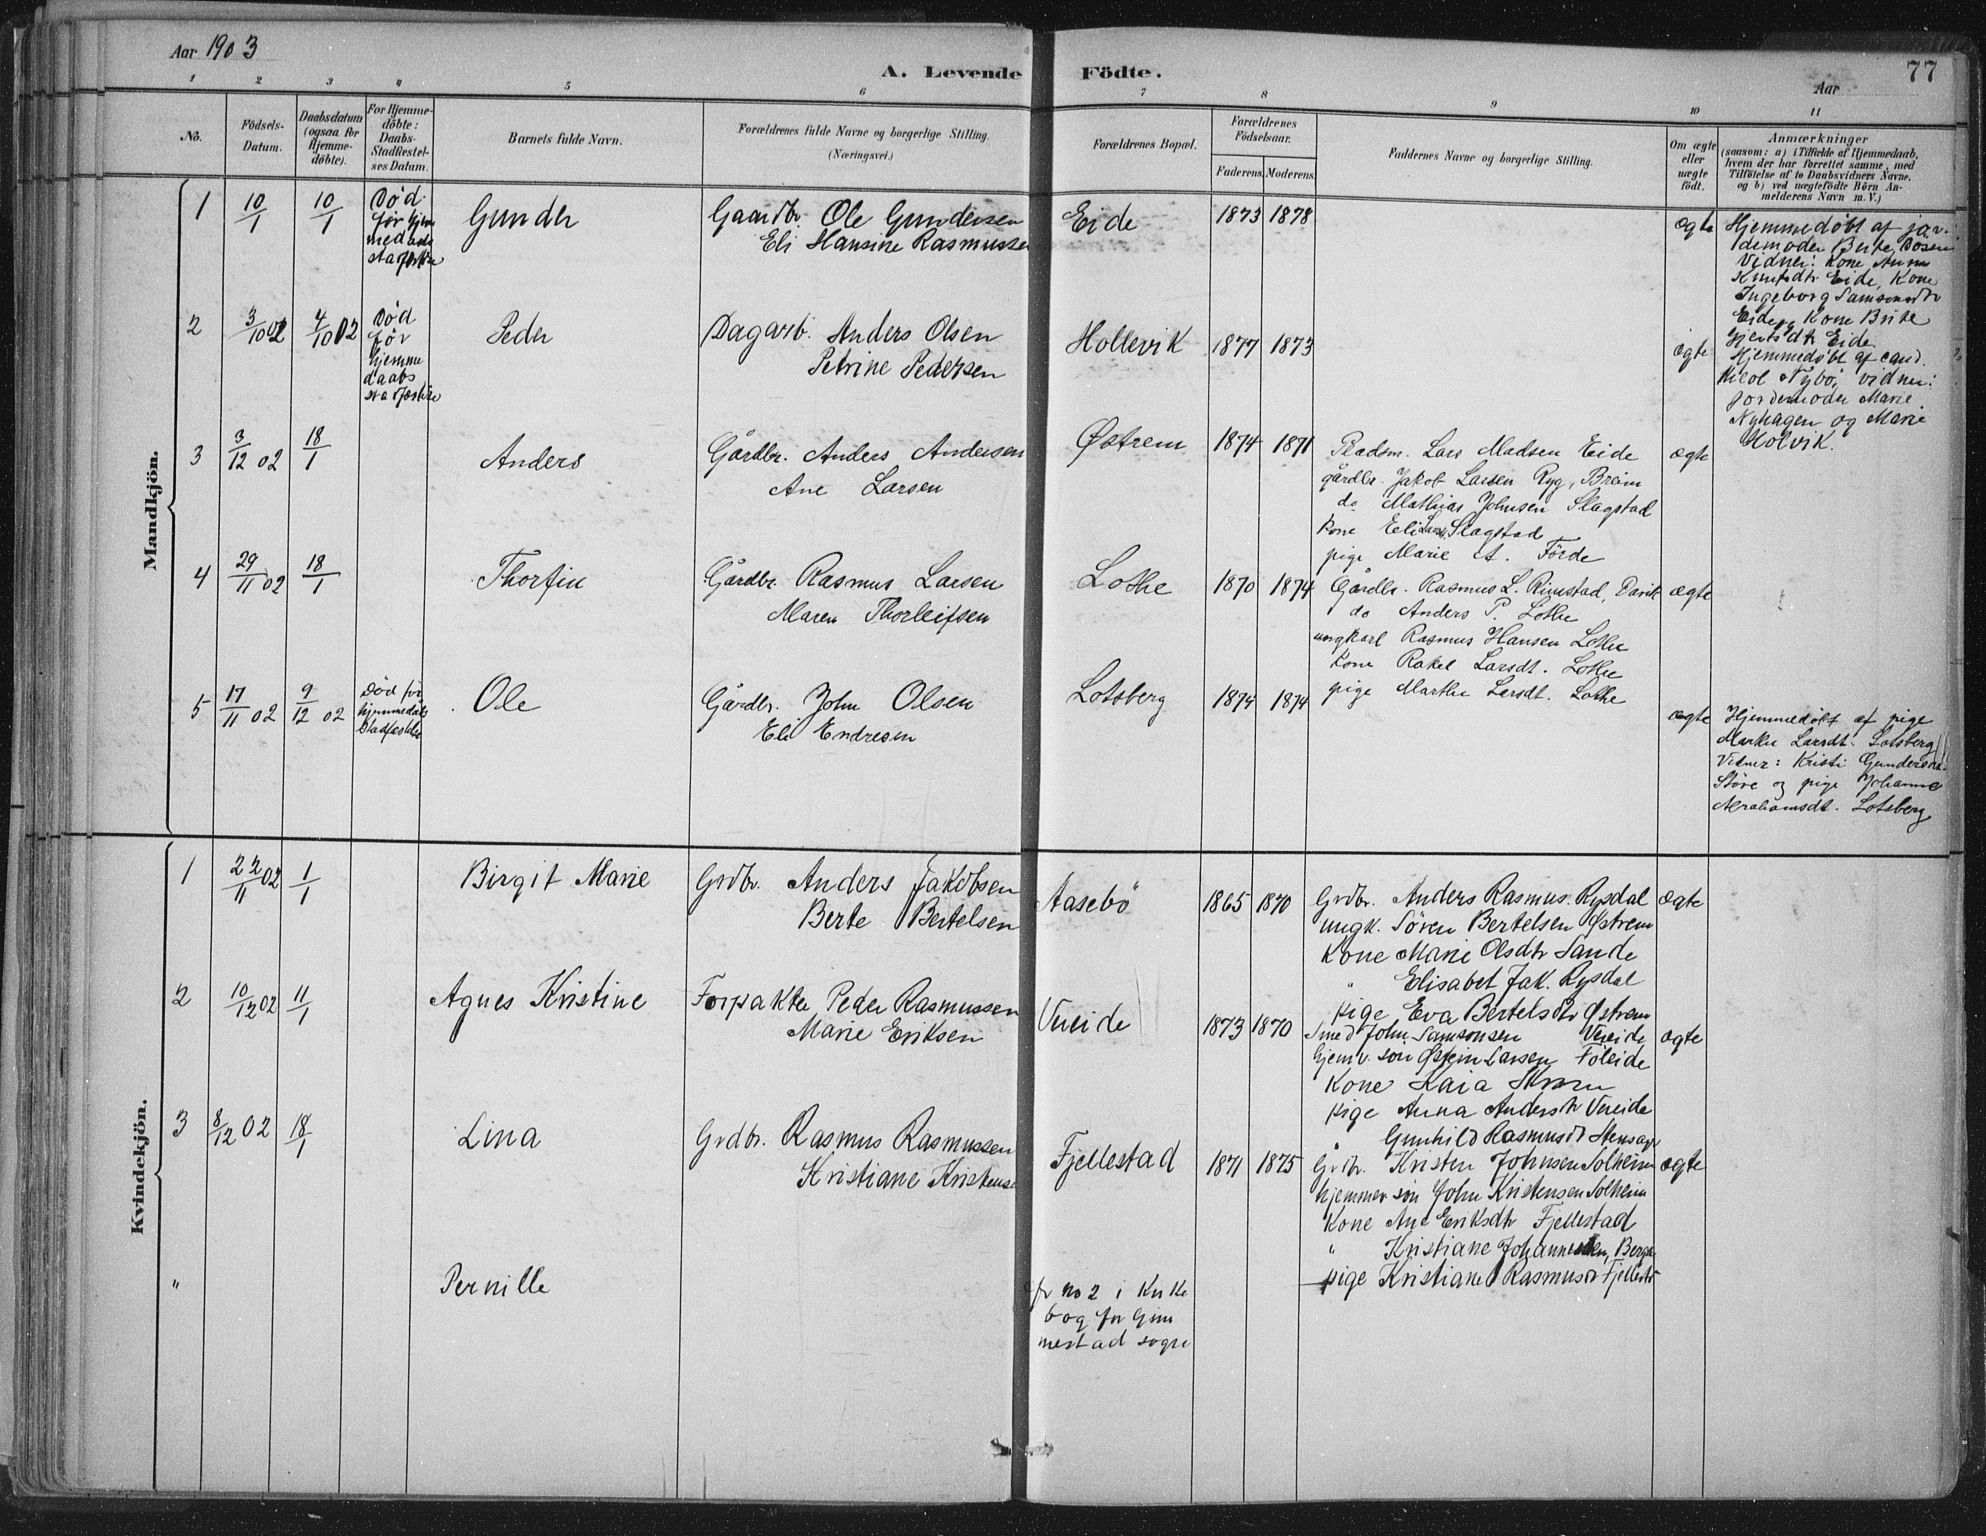 Aar 1903
A. Levende Födte.
77
Aar
1 2 3 4 5 6 7 8 9 10 11
No.
Födsels-Datum.
Daabsdatum (ogsaa for Hjemmedöbte).
For Hjemmedöbte: Daabs-Stadfestelses Datum.
Barnets fulde Navn.
Forældrenes fulde Navne og borgerlige Stilling.
(Næringsvei.)
Forældrenes Bopæl.
Forældrenes Födselsaar.
Faderens. Moderens.
Faddernes Navne og borgerlige Stilling.
Om ægte eller uægte födt.
Anmærkninger
(saasom: a) i Tilfælde af Hjemmedaab, hvem der har forrettet samme, med Tilföielse af to Daabsvidners Navne, og b) ved uægtefödte Börn Anmelderens Navn m. V.)
Mandkjön.
1 10/1 10/1 Död før hjemmedaabs stadfæstelse
Gunder
Gaardbr. Ole Gundersen
Eli Hansine Rasmussen
Eide 1873 1878
ægte
Hjemmedøbt af jordemoder Berte
Vidner: Kone Anna
Knutsdtr Eide, Kone
Ingeborg Samsonsdtr
Eide, Kone Brite
Gjertsdtr Eide.
2 3/10 02 4/10 02 Död før hjemmedaabs
Peder
Dagarb. Anders Olsen
Petrine Pedersen
Hollevik 1877 1873
ægte
Hjemmedøbt af cand.
Nybö, vidner:
jordemoder Marie
Nyhagen og Marie
Holvik.
3 3/12 02 18/1
Anders
Gårdbr. Anders Andersen
Ane Larsen
Østrem 1874 1871
Pladsm. Lars Madsen Eide
gårdbr. Jakob Larsen Ryg, Breim
do Mathias Johnsen Slagstad
kone Eli Lars. Slagstad
pige Marie A. Förde
ægte
4 29/11 02 18/1
Thorfin
Gårdbr. Rasmus Larsen
Maren Thorleifsen
Lothe 1870 1874
Gårdbr. Rasmus L. Rimstad, Davik
do Anders P. Lothe
ungkarl Rasmus Hansen Lothe
Kone Rakel Larsdt. Lothe
pige Marthe Larsdt. Lothe
ægte
5 17/11 02 9/12 02 Död før hjemmedaabs
Ole
Gårdbr. John Olsen
Eli Endresen
Lotsberg 1874 1874
ægte
Hjemmedöbt af pige
Marthe Larsdt. Lotsberg
Vidner: Kristi Gundersdt.
Støre og pige Johanne
Abrahamsdt. Lotsberg
Kvindekjön.
1 22/11 02 1/1
Birgit Marie
Grdbr. Anders Jakobsen
Berte Bertelsen
Aasebö 1865 1870
Grdbr. Anders Rasmus. Rysdal
ungk. Sören Bertelsen Østrem
Kone Marie Olsdtr Sande
" Elisabet Jak. Rysdal
pige Eva Bertelsdtr Østrem
ægte
2 10/12 02 11/1
Agnes Kristine
Forpakter Peder Rasmussen
Marie Eriksen
Vereide 1873 1870
Smed John Samsonsen Vereide
hjemv. søn Østein Larsen Föleide
Kone Kaia
pige Anna Andersdtr Vereide
" Gunhild Rasmusdt
ægte
3 8/12 02 18/1
Lina
Grdbr. Rasmus Rasmussen
Kristiane Kristensen
Fjellestad 1871 1875
Grdbr. Kristen Johnsen Solheim
hjemmev søn John Kristensen Solheim
Kone Ane Eriksdtr Fjellestad
" Kristiane Johannesen, Berge
pige Kristiane Rasmusdt Fjellestad
ægte
"
Pernille
cfr no 2 i Kirke
bog for Gim
mestad sogn